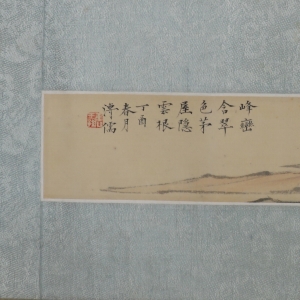 峰巒
含翠
色茅
屋隱
雲根
丁酉
春月
溥儒